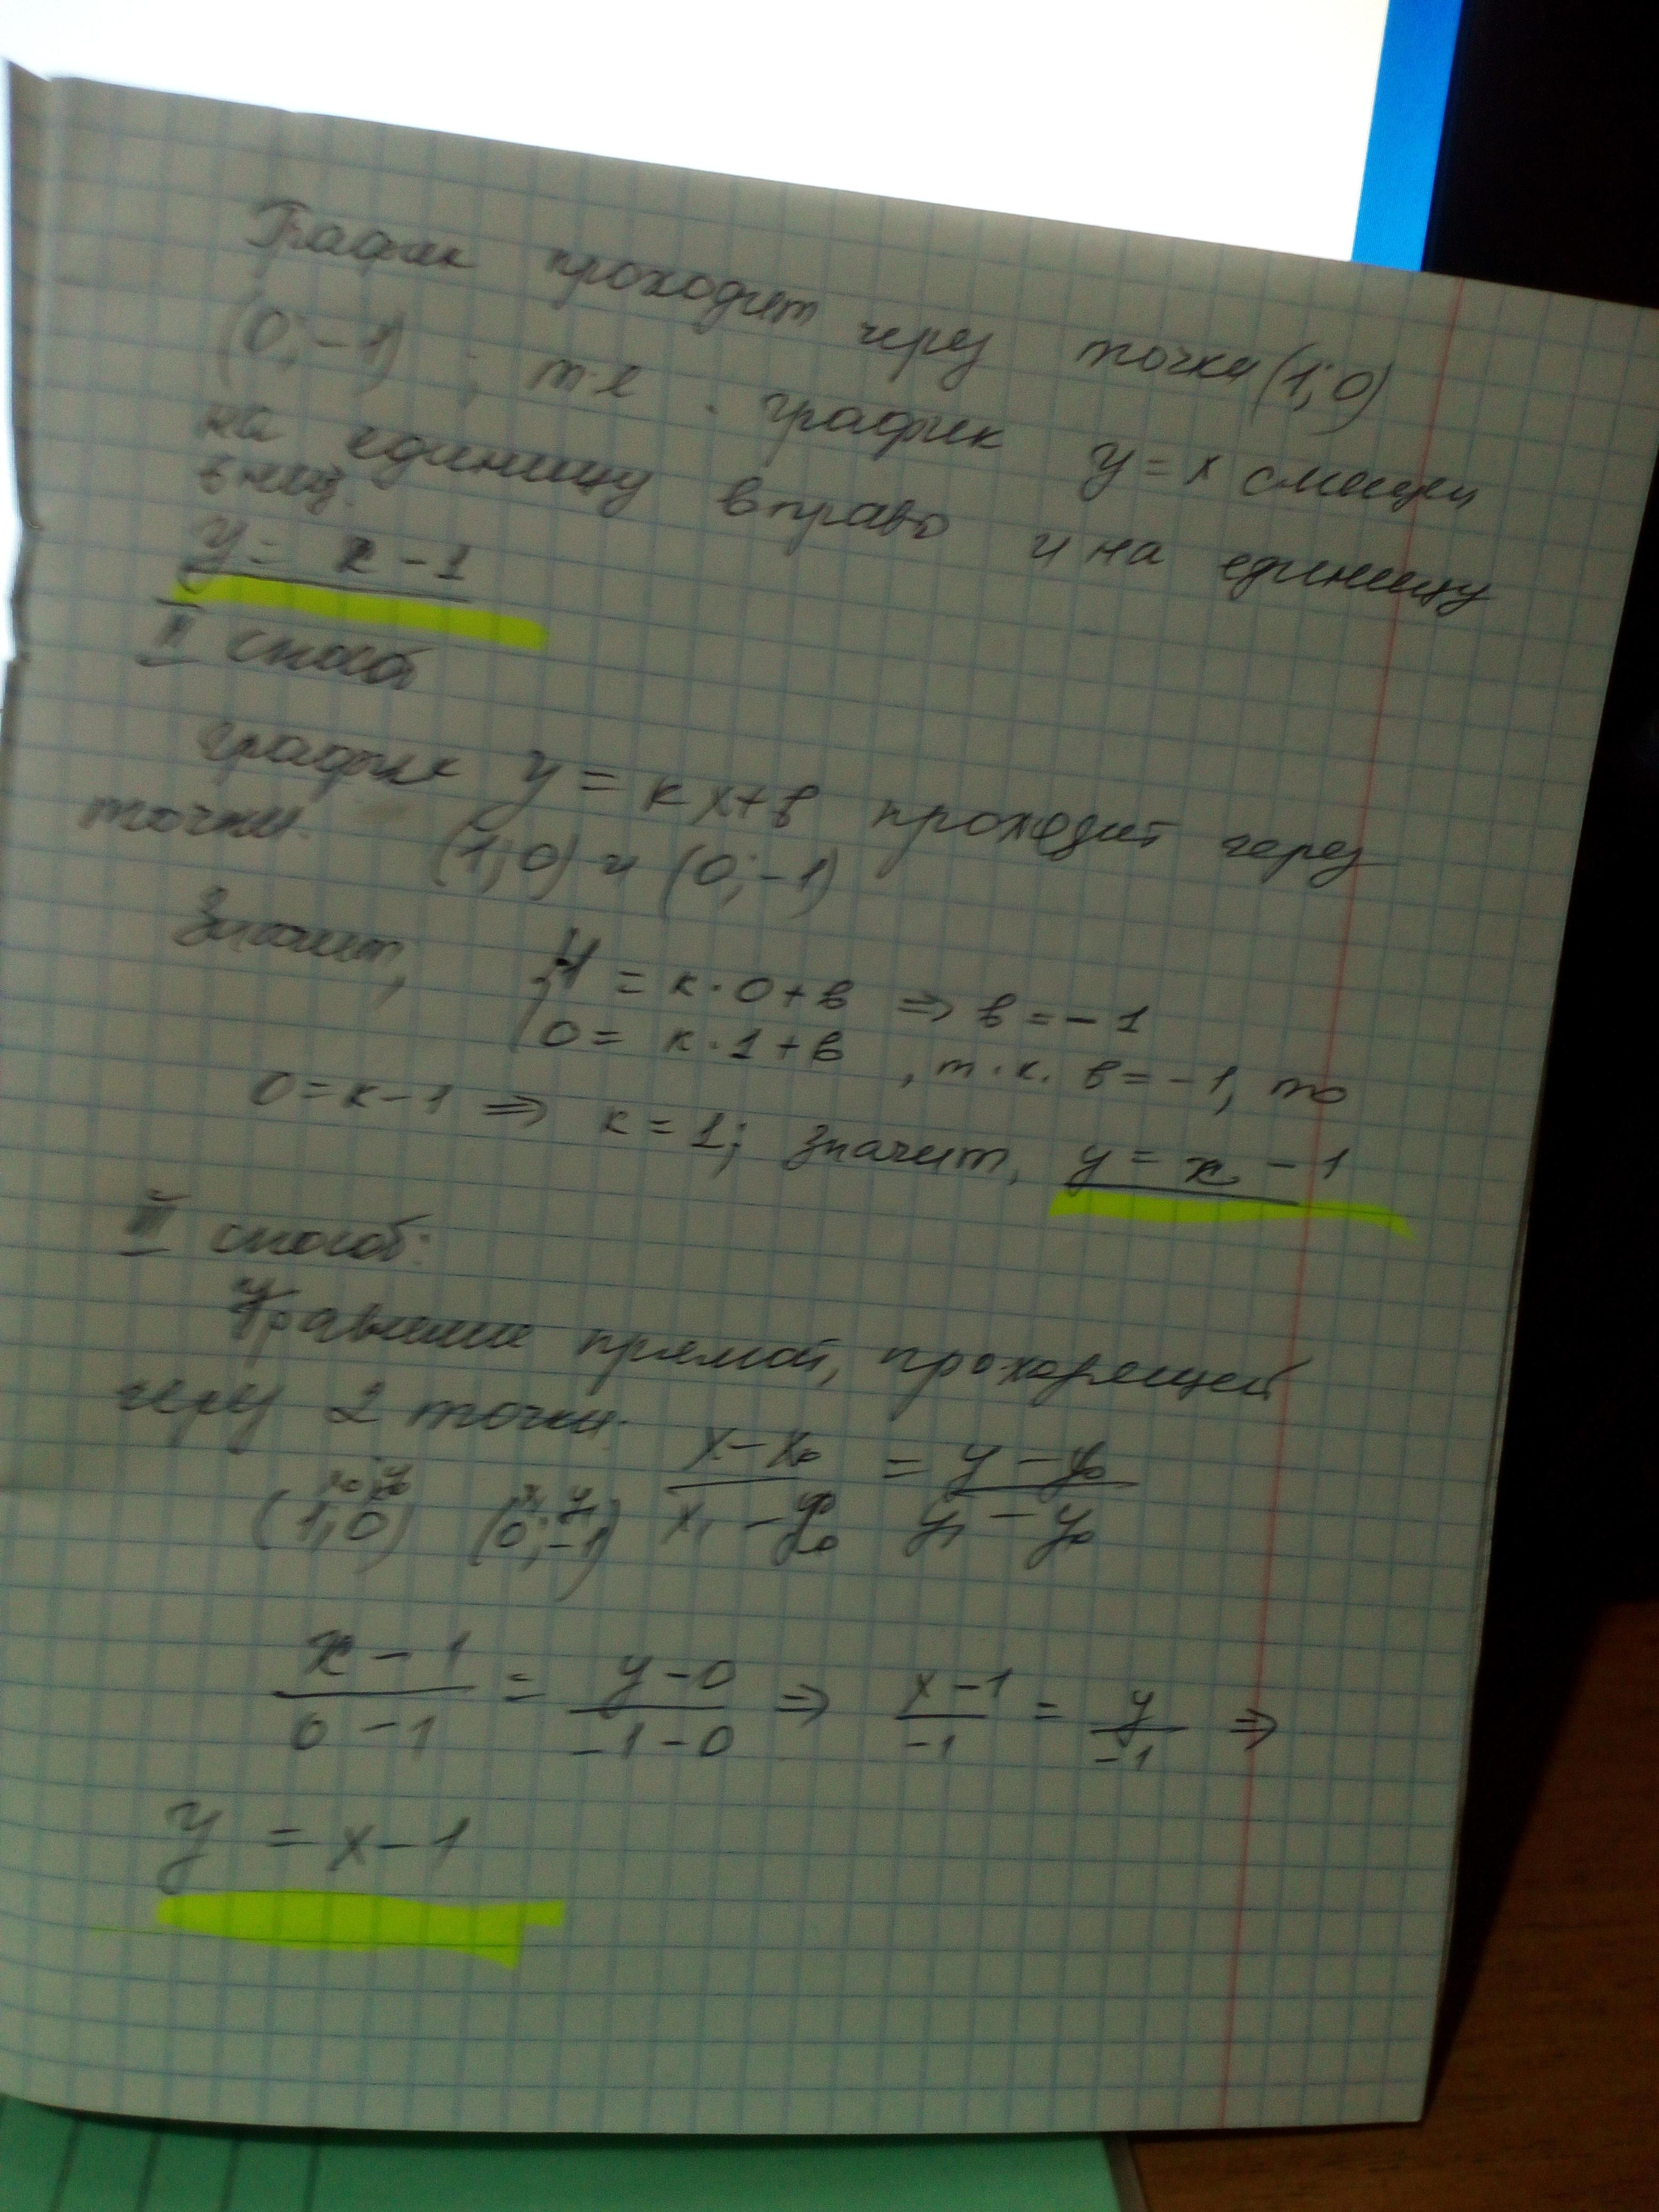 График проходит через точки (1;0)
(0;-1) ; т.е. график y = x смещен
на единицу вправо и на единицу
вниз.
y = x - 1
II способ
график y = кx+в проходит через
точки (1;0) и (0;-1)
Значит, { -1 = к·0+в ⇒ в = -1
0 = к·1+в , т.к. в = -1, то
0 = к-1 ⇒ к = 1; значит, y = x - 1
III способ:
Уравнение прямой, проходящей
через 2 точки.
x - x₀ / x₁ - y₀ = y - y₀ / y₁ - y₀
x₀ y₀ x₁ y₁
(1;0) (0;-1)
x - 1 / 0 - 1 = y - 0 / -1 - 0 ⇒ x - 1 / -1 = y / -1 ⇒
y = x - 1